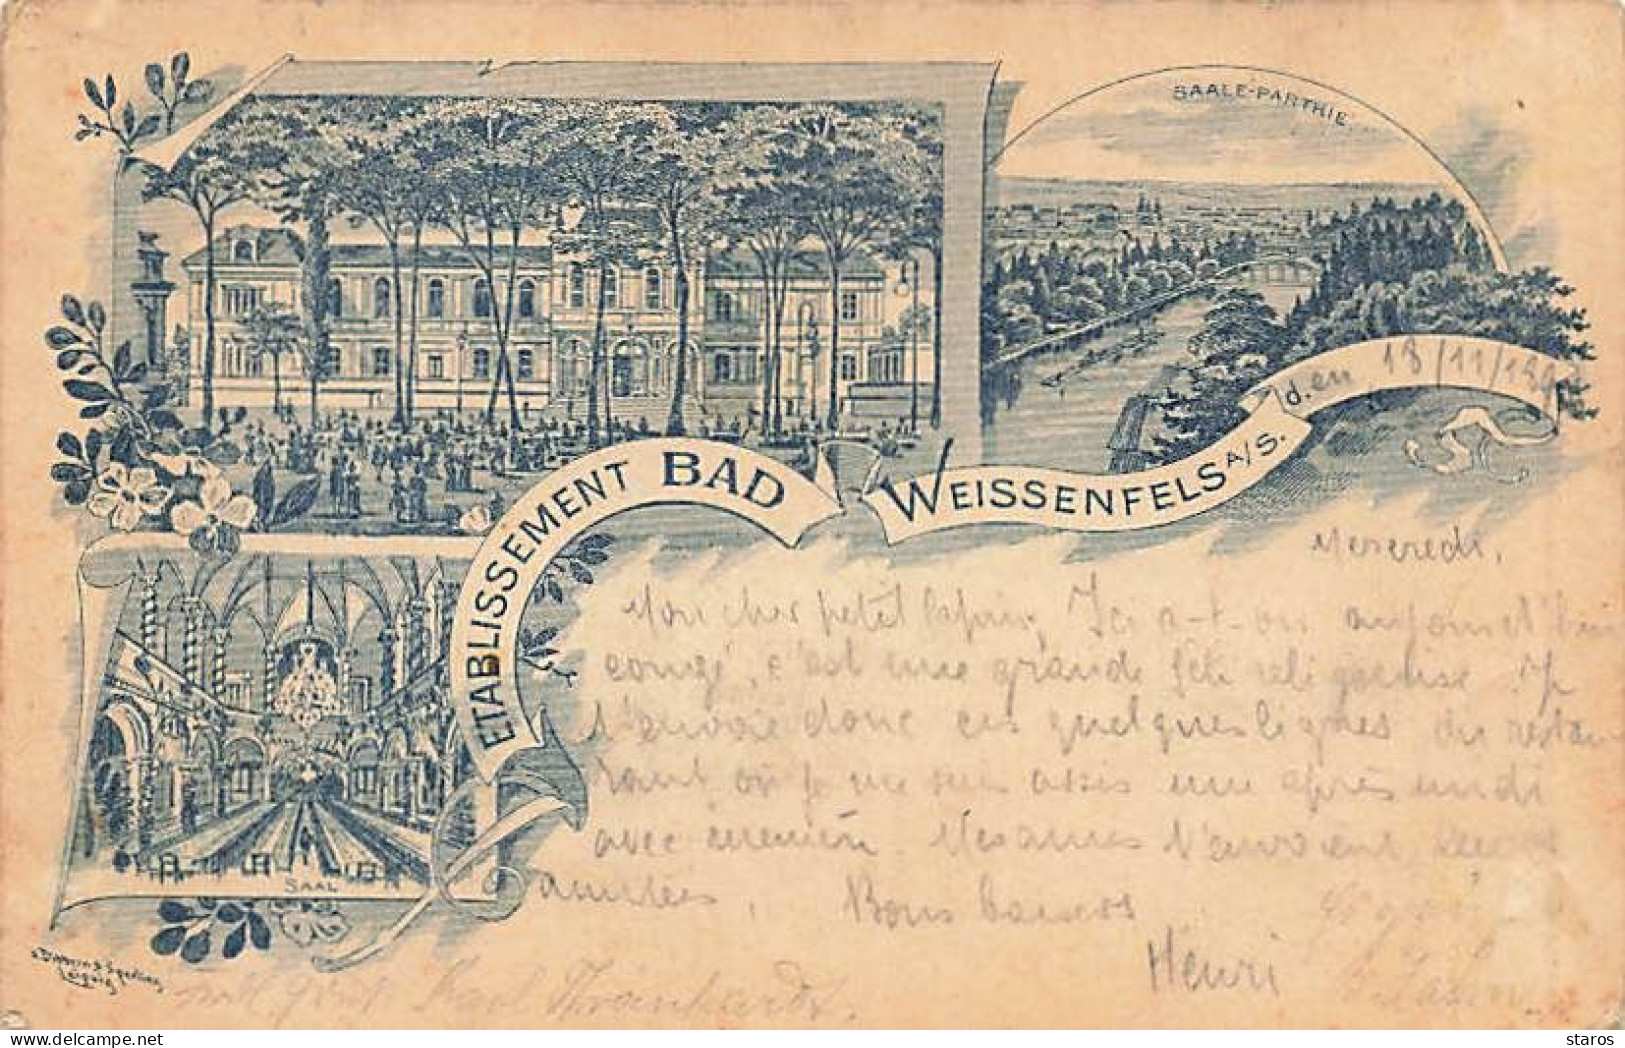 SAALE-PARTHIE.
ETABLISSEMENT BAD WEISSENFELS A/S.
d. en 18/11/189
SAAL
Leipzig
Mercredi,
Mon cher petit lapin, Ici a-t-on aujourd'hui
congé, c'est une grande fête religieuse. Je
t'envoie donc ces quelques lignes du restau
rant où je me suis assis une après midi
avec
Mes amis t'envoient
amitiés. Bons baisers
Henri
Karl